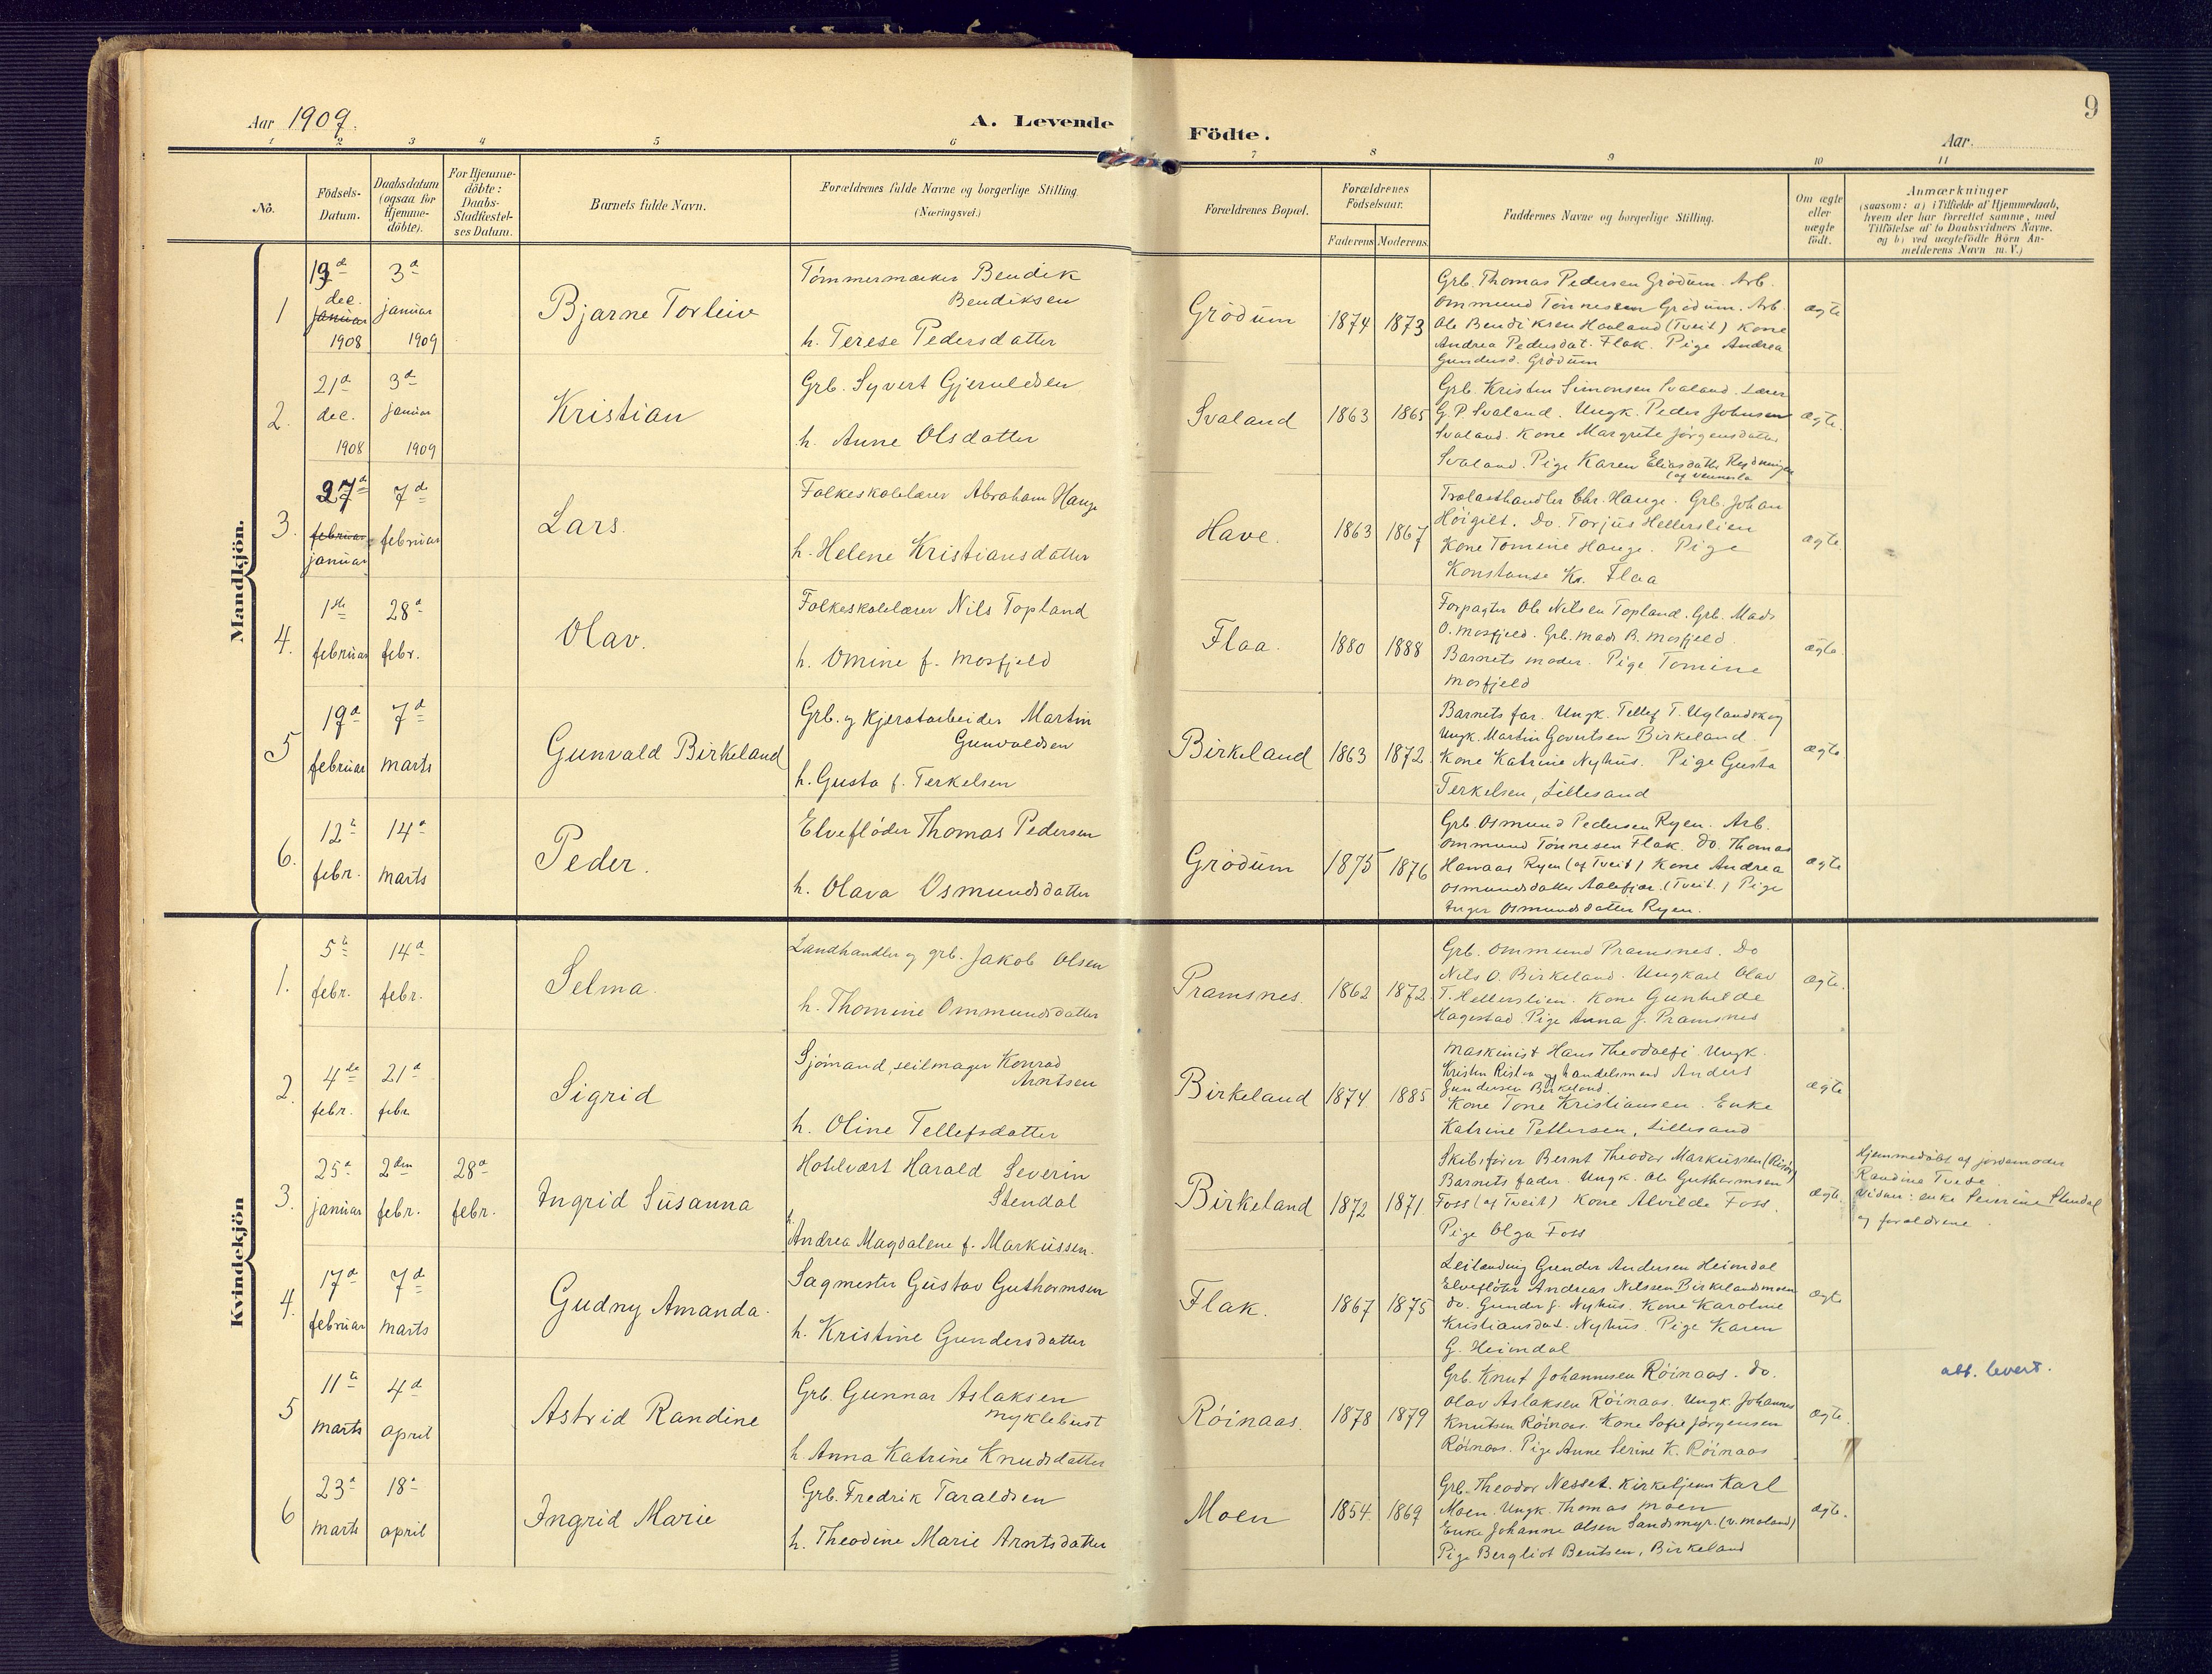 9
Aar 1909.
A. Levende Födte.
Aar
1 2 3 4 5 6 7 8 9 10 11
No.
Födsels-Datum.
Daabsdatum (ogsaa for Hjemme-döbte).
For Hjemme-döbte: Daabs-Stadfæstel-ses Datum.
Barnets fulde Navn.
Forældrenes fulde Navne og borgerlige Stilling (Næringsvei.)
Forældrenes Bopæl.
Forældrenes Födselsaar.
Faderens Moderens.
Faddernes Navne og borgerlige Stilling.
Om ægte eller uægte født.
Anmærkninger
(saasom: a) i Tilfælde af Hjemmedaab,
hvem der har forrettet samme, med
Tilföielse af to Daabsvidners Navne.
og b) ved uægtefödte Börn An-
melderens Navn m. V.)
Mandkjön.
1 19d dec. januar 1908
3d januar 1909
Bjarne Torleiv
Tömmermærker Bendik
Bendiksen
h. Terese Pedersdatter
Grödum 1874 1873
Grb. Thomas Pedersen Grödum. Arb.
Ommund Tönnesen Grödum. Arb.
Ole Bendiksen Haaland (Tveit) Kone
Andrea Pedersdat. Flak. Pige Andrea
Gundersd. Grödum
ægte
2. 21d dec. 1908
3d januar 1909
Kristian
Grb. Syvert Gjeruldsen
h. Anne Olsdatter
Svaland 1863 1865
Grb. Kristen Simonsen Svaland. Lærer
G. P. Svaland. Ungk. Peder Johnsen
Svaland. Kone Margrete Jörgensdatter
Svaland. Pige Karen Eliasdatter
(af Vennesla
ægte.
3. 27d februar januar
7d februar
Lars.
Folkeskolelærer Abraham Hauge
h. Helene Kristiansdatter
Have. 1863 1867
Trælasthandler Chr. Hauge. Grb. Johan
Höigilt. Do. Torjus Hellerslien
Kone Tomine Hauge. Pige
Konstanse Kr. Flaa
ægte.
4. 1ste februar
28d febr.
Olav.
Folkeskolelærer Nils Topland
h. Omine f. Mosfjeld
Flaa. 1880 1888
Forpagter Ole Nilsen Topland. Grb. Mads
O. Mosfjeld. Grb. Mads B. Mosfjeld.
Barnets moder. Pige Tomine
Mosfjeld
ægte
5 19d februar
7d marts
Gunvald Birkeland
Grb. og Kjeratarbeider Martin
Gunvaldsen
h. Gusta f. Terkelsen
Birkeland 1863 1872.
Barnets far. Ungk. Tellef T. Uglandskog
Ungk. Martin Govertsen Birkeland
Kone Katrine Nyhus. Pige Gusta
Terkelsen, Lillesand
ægte
6. 12te febr.
14d marts
Peder.
Elveflöder Thomas Pedersen
h. Olava Osmundsdatter
Grödum 1875 1876
Grb. Osmund Pedersen Ryen. Arb.
Ommund Tönnesen Flak. Do. Thomas
Hanaas Ryen (af Tveit) Kone Andrea
Osmundsdatter Aalefjær (Tveit.) Pige
Inger Osmundsdatter Ryen.
ægte
Kvindekjön
1. 5te febr.
14d febr.
Selma.
Landhandler og grb. Jakob Olsen
h. Thomine Ommundsdatter
Pramsnes. 1862 1872.
Grb. Ommund Pramsnes. Do
Nils O. Birkeland. Ungkarl Olav
T. Hellerslien. Kone Gunhilde
Hagestad. Pige Anna J. Pramsnes
ægte.
2. 4de febr.
21d febr
Sigrid
Sjömand, seilmager Konrad
Arntsen
h. Oline Tellefsdatter
Birkeland 1874 1885
Maskinist Hans Theodorfi Ungk.
Kristen Ristea og handelsmand Anders
Gundersen Birkeland.
Kone Tone Kristiansen. Enke
Katrine Pettersen, Lillesand
ægte
3. 25d januar
2den febr.
28d febr.
Ingrid Susanna
Hotelvært Harald Severin
Stendal
h. Andrea Magdalene f. Markussen.
Birkeland 1872 1871.
Skibsförer Bernt Theodor Markussen (Risör)
Barnets fader. Ungk. Ole Guthormsen
Foss (af Tveit) Kone Alvilde Foss.
Pige Olga Foss
ægte.
Hjemmedöbt af jordemoder
Randine Tvede.
Vidner: enke Severine Stendal
og forældrene.
4. 17d februar
7d marts
Gudny Amanda.
Sagmester Gustav Guthormsen
h. Kristine Gundersdatter
Flak. 1867 1875
Leilending Gunder Andersen Heimdal
Elveflöter Andreas Nilssen Birkelandsmoen
do. Gunder G. Nyhus. Kone Karoline
Kristiansdat. Nyhus. Pige Karen
G. Heimdal
ægte
5 11te marts
4d april
Astrid Randine
Grb. Gunnar Aslaksen
Myklebust
h Anna Katrine Knudsdatter
Röinaas. 1878 1879
Grb. Knut Johannesen Röinaas. do.
Olav Aslaksen Röinaas. Ungk. Johannes
Knutsen Röinaas. Kone Sofie Jörgensen
Röinaas. Pige Anne Serine K. Röinaas
ægte.
att. levert.
6 23d marts
18d april
Ingrid Marie
Grb. Fredrik Taraldsen
h. Theodine Marie Arntsdatter
Moen 1854 1869
Grb. Theodor Nesset. Kirketjener Karl
Moen. Ungk. Thomas Moen
Enke Johanne Olsen Sandsmyr. (V. Moland)
Pige Bergliot Bentsen, Birkeland
ægte.